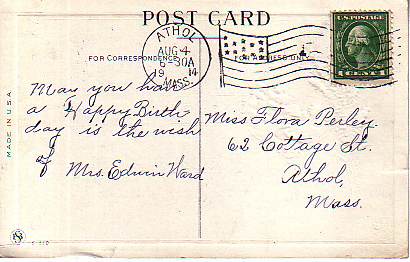 POST CARD
ATHOL
AUG 4
6-30A
19 14
MASS.
U.S. POSTAGE
1 CENT 1
FOR CORRESPONDENCE
FOR ADDRESS ONLY
May you have
a Happy Birth-
day is the wish
of Mrs. Edwin Ward
Miss Flora Perley.
62 Cottage St.
Athol,
Mass.
MADE IN U.S.A.